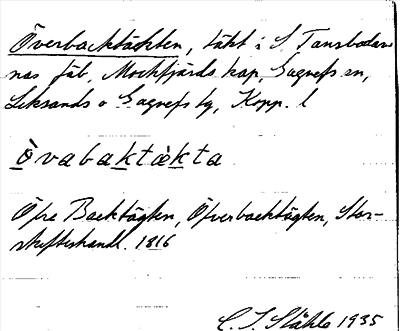 Överbacktäckten, täkt i S. Tansbodar-
nas fäb, Mockfjärds kap, Gagnefs sn,
Leksands o Gagnefs tg, Kopp. l
Òvabaktàkta
Öfre Backtägten, Öfverbacktägten, Stor-
skifteshandl. 1816
C. I. Ståhle 1935